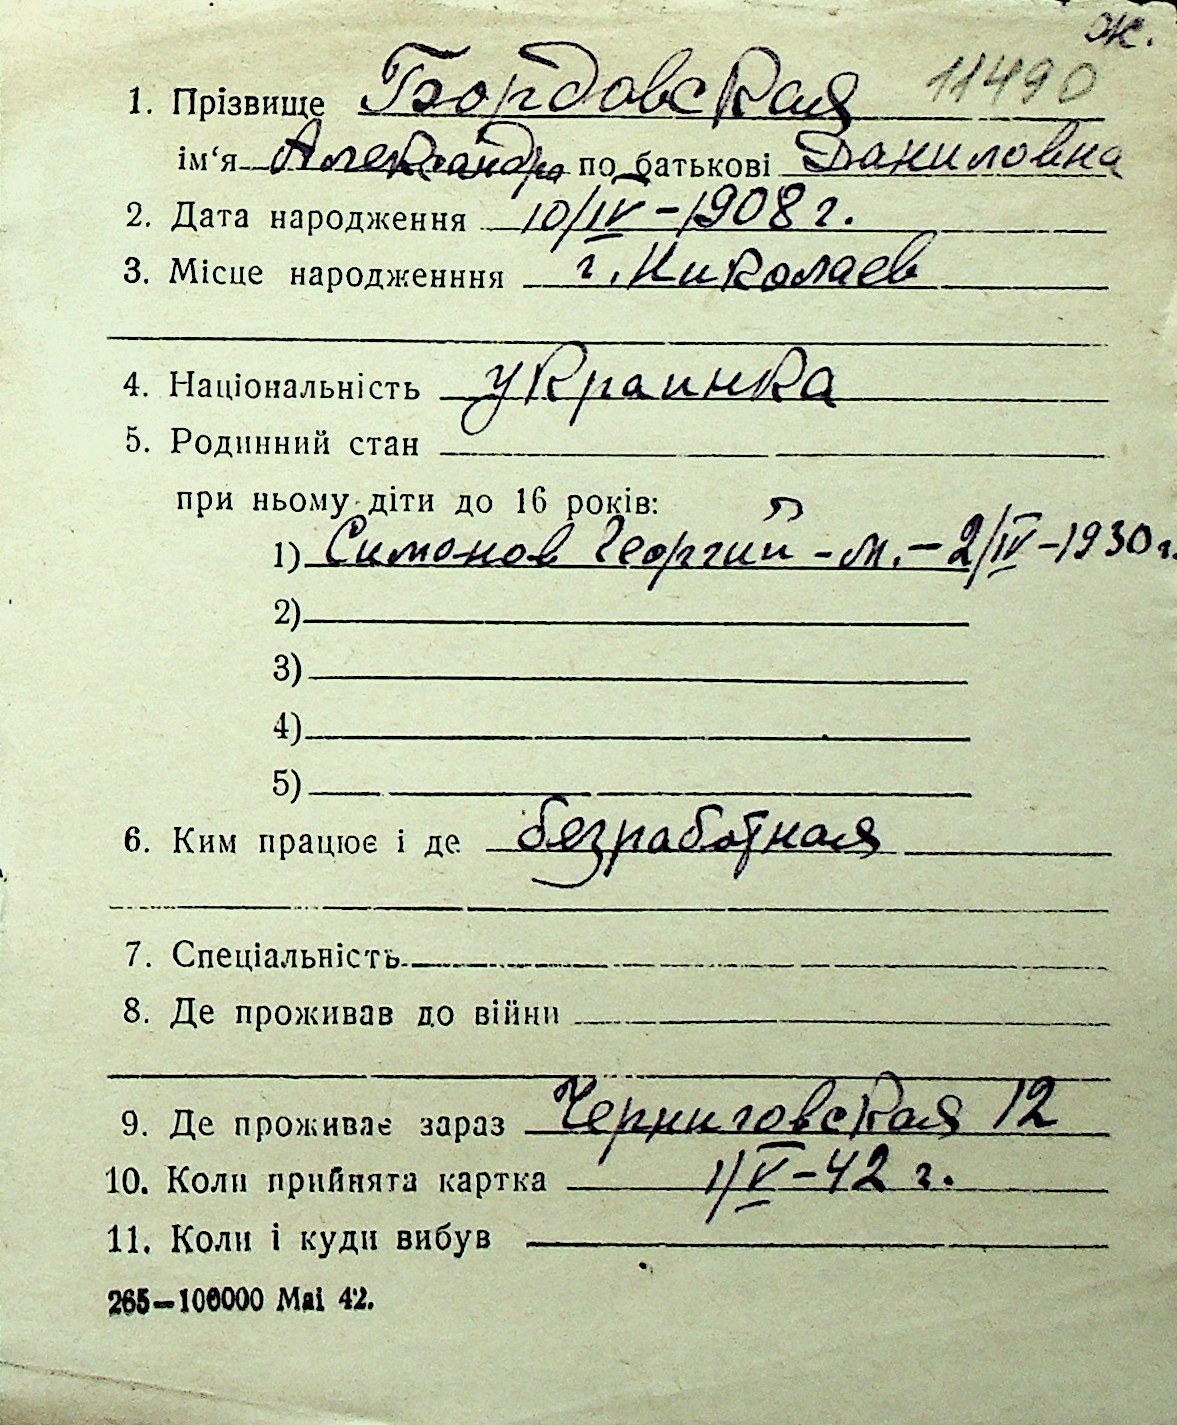 ж.
11490
1. Прізвище Бордовская
ім‘я Александра по батькові Даниловна
2. Дата народження 10/IV-1908 г.
3. Місце народженння г. Николаев
4. Національність украинка
5. Родинний стан
при ньому діти до 16 років:
1) Симонов Георгий - м. - 2/IV-1930 г.
2)
3)
4)
5)
6. Ким працює і де безработная
7. Спеціальність
8. Де проживав до війни
9. Де проживає зараз Черниговская 12
10. Коли прийнята картка 1/V-42 г.
11. Коли і куди вибув
265—100000 Mai 42.